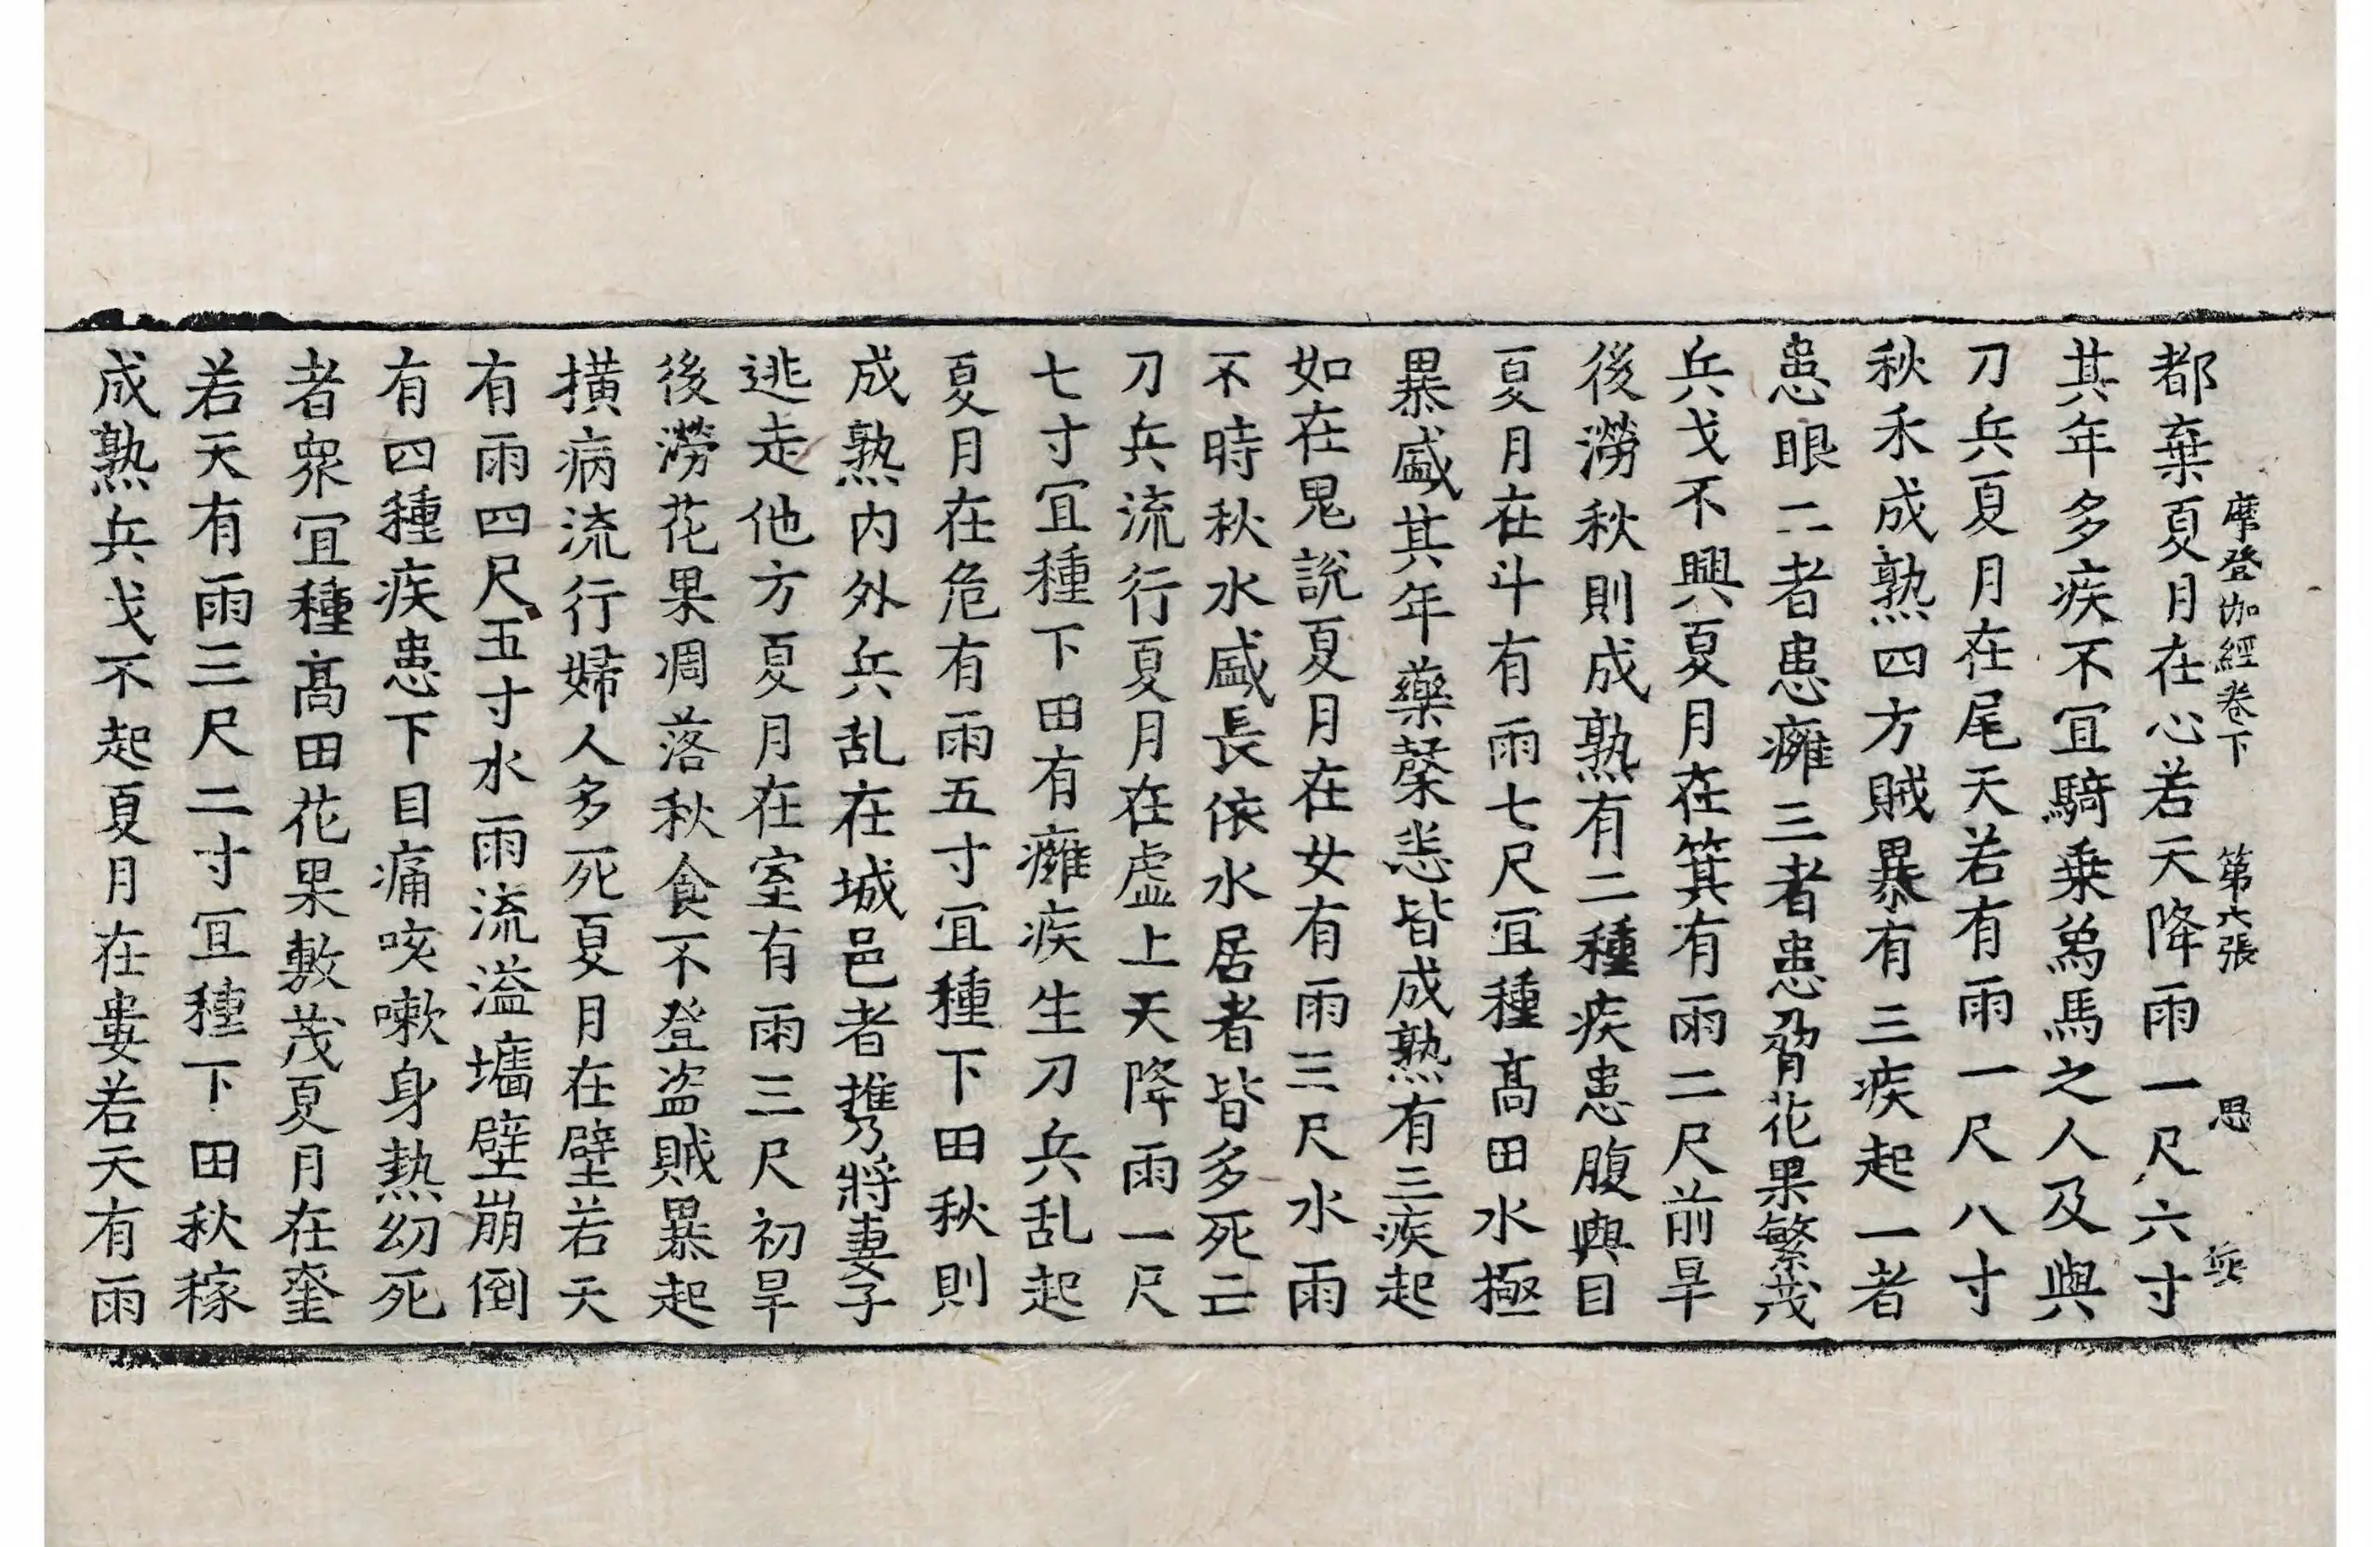 摩登伽經卷下　第六張　思
都棄夏月在心若天降雨一尺六寸
其年多疾不冝騎乗為馬之人及與
刀兵夏月在尾天若有雨一尺八寸
秋禾成熟四方賊暴有三疾起一者
患眼二者患癰三者患脅花果繁茂
兵戈不興夏月在箕有雨二尺前旱
後澇秋則成熟有二種疾患腹與目
夏月在斗有雨七尺冝種髙田水極
暴盛其年藥䅽悉皆成熟有三疾起
如在鬼說夏月在女有雨三尺水雨
不時秋水盛長依水居者皆多死亡
刀兵流行夏月在虛上天降雨一尺
七寸冝種下田有癰疾生刀兵乱起
夏月在危有雨五寸冝種下田秋則
成熟内外兵乱在城邑者擕將妻子
逃走他方夏月在室有雨三尺初旱
後澇花果凋落秋食不登盜賊暴起
撗病流行婦人多死夏月在壁若天
有雨四尺五寸水雨流溢墻壁崩倒
有四種疾患下目痛咳嗽身熱幼死
者衆冝種髙田花果敷茂夏月在奎
若天有雨三尺二寸冝種下田秋稼
成熟兵戈不起夏月在婁若天有雨